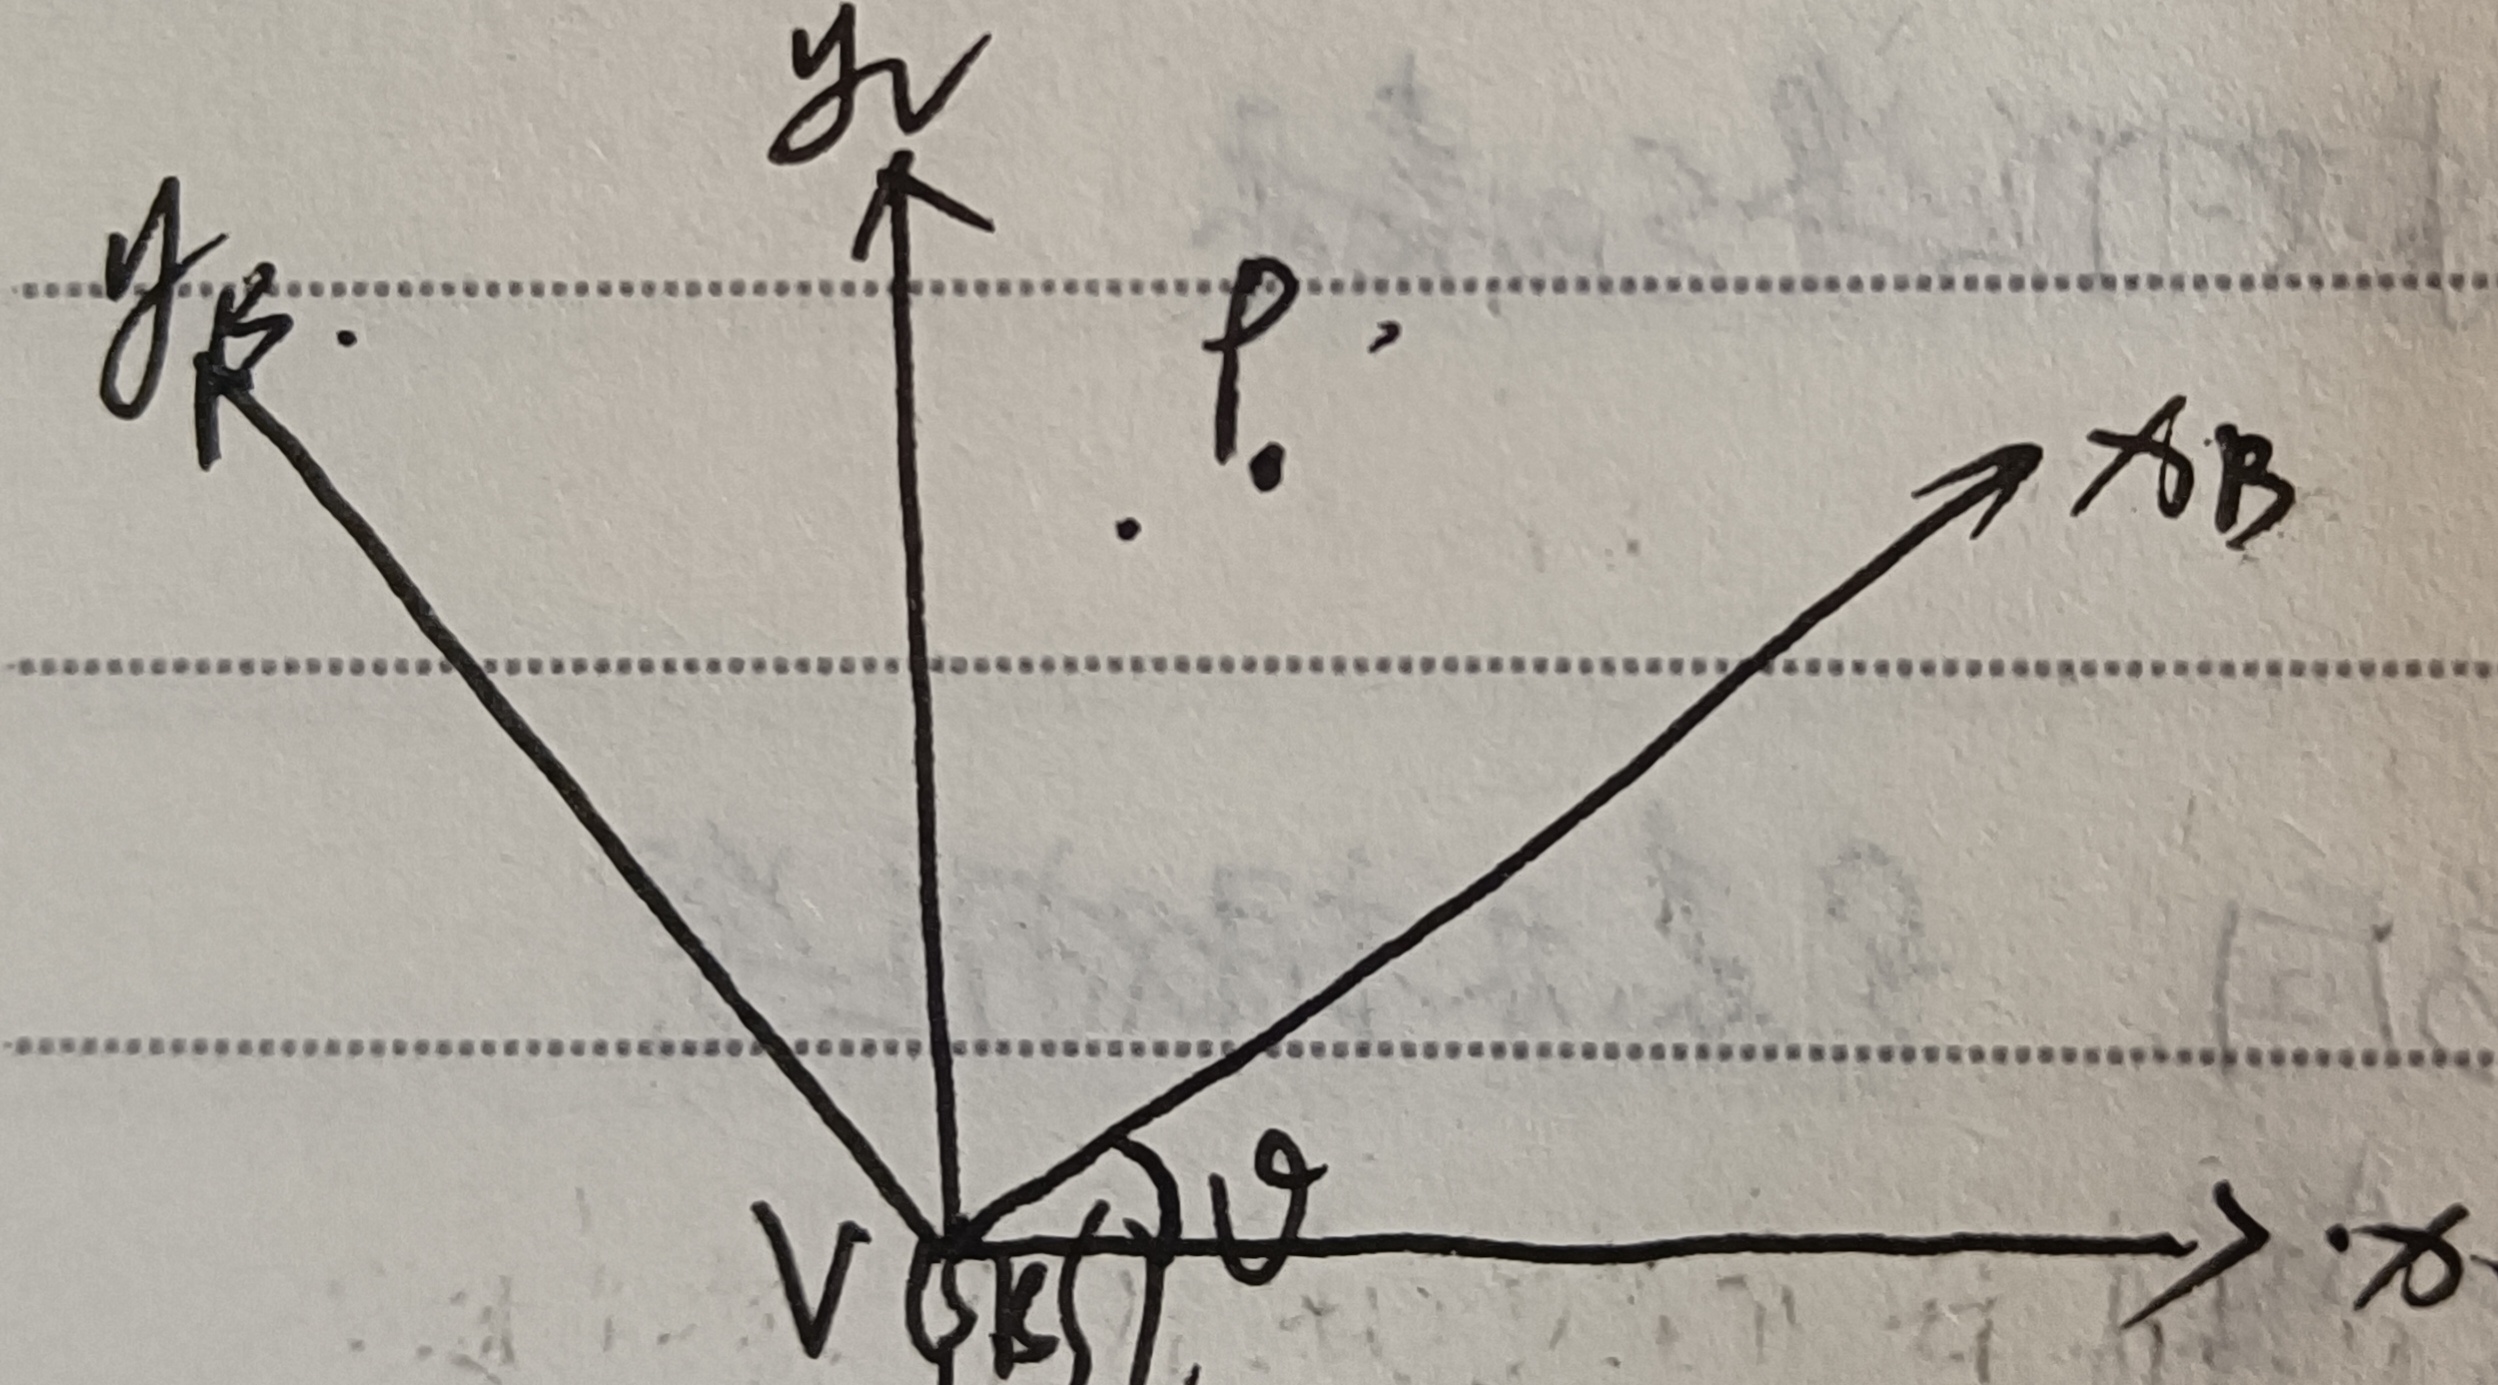 y_V
y_B.
P.
x_B
V
ϑ
x